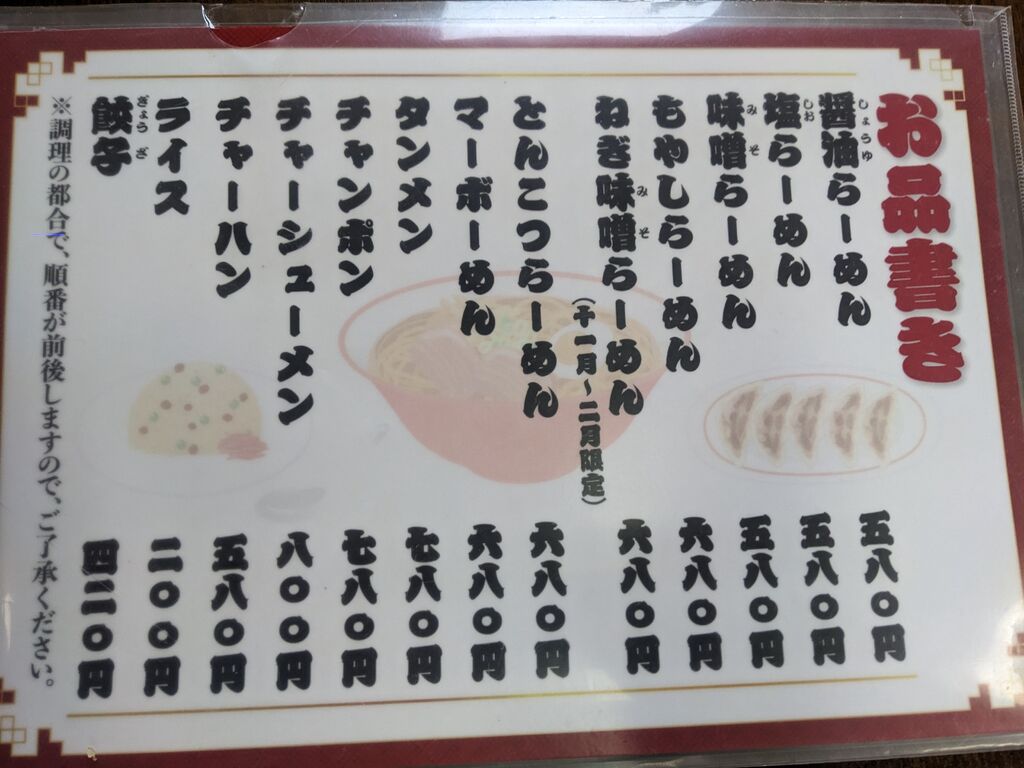 お品書き
醤油らーめん 五八〇円
塩らーめん 五八〇円
味噌らーめん 五八〇円
もやしらーめん 六八〇円
ねぎ味噌らーめん 六八〇円
(十一月～二月限定)
とんこつらーめん 六八〇円
マーボーめん 六八〇円
タンメン 七八〇円
チャンポン 七八〇円
チャーシューメン 八〇〇円
チャーハン 五八〇円
ライス 二〇〇円
餃子 四二〇円
※調理の都合で、順番が前後しますので、ご了承ください。